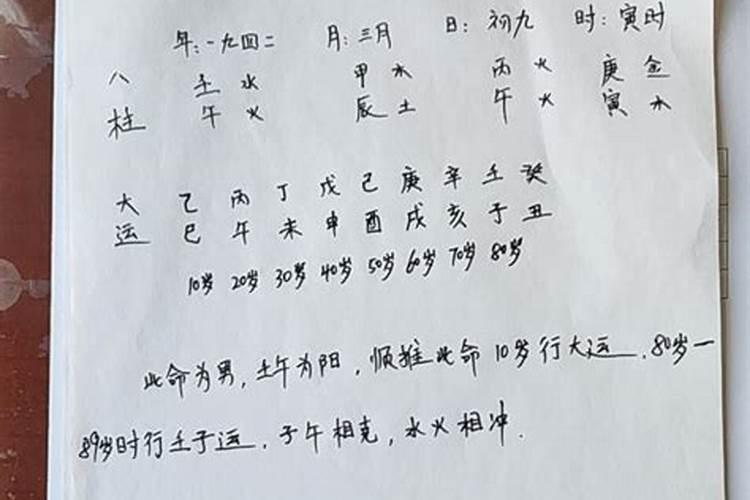 年:一九四二 月:三月 日:初九 时:寅时
八 壬水 甲木 丙火 庚金
柱 午火 辰土 午火 寅木
大 乙 丙 丁 戊 己 庚 辛 壬 癸
运 巳 午 未 申 酉 戌 亥 子 丑
10岁 20岁 30岁 40岁 50岁 60岁 70岁 80岁
此命为男,壬午为阳,顺推此命10岁行大运,80岁一
89岁时行壬子运,子午相克,水火相冲.